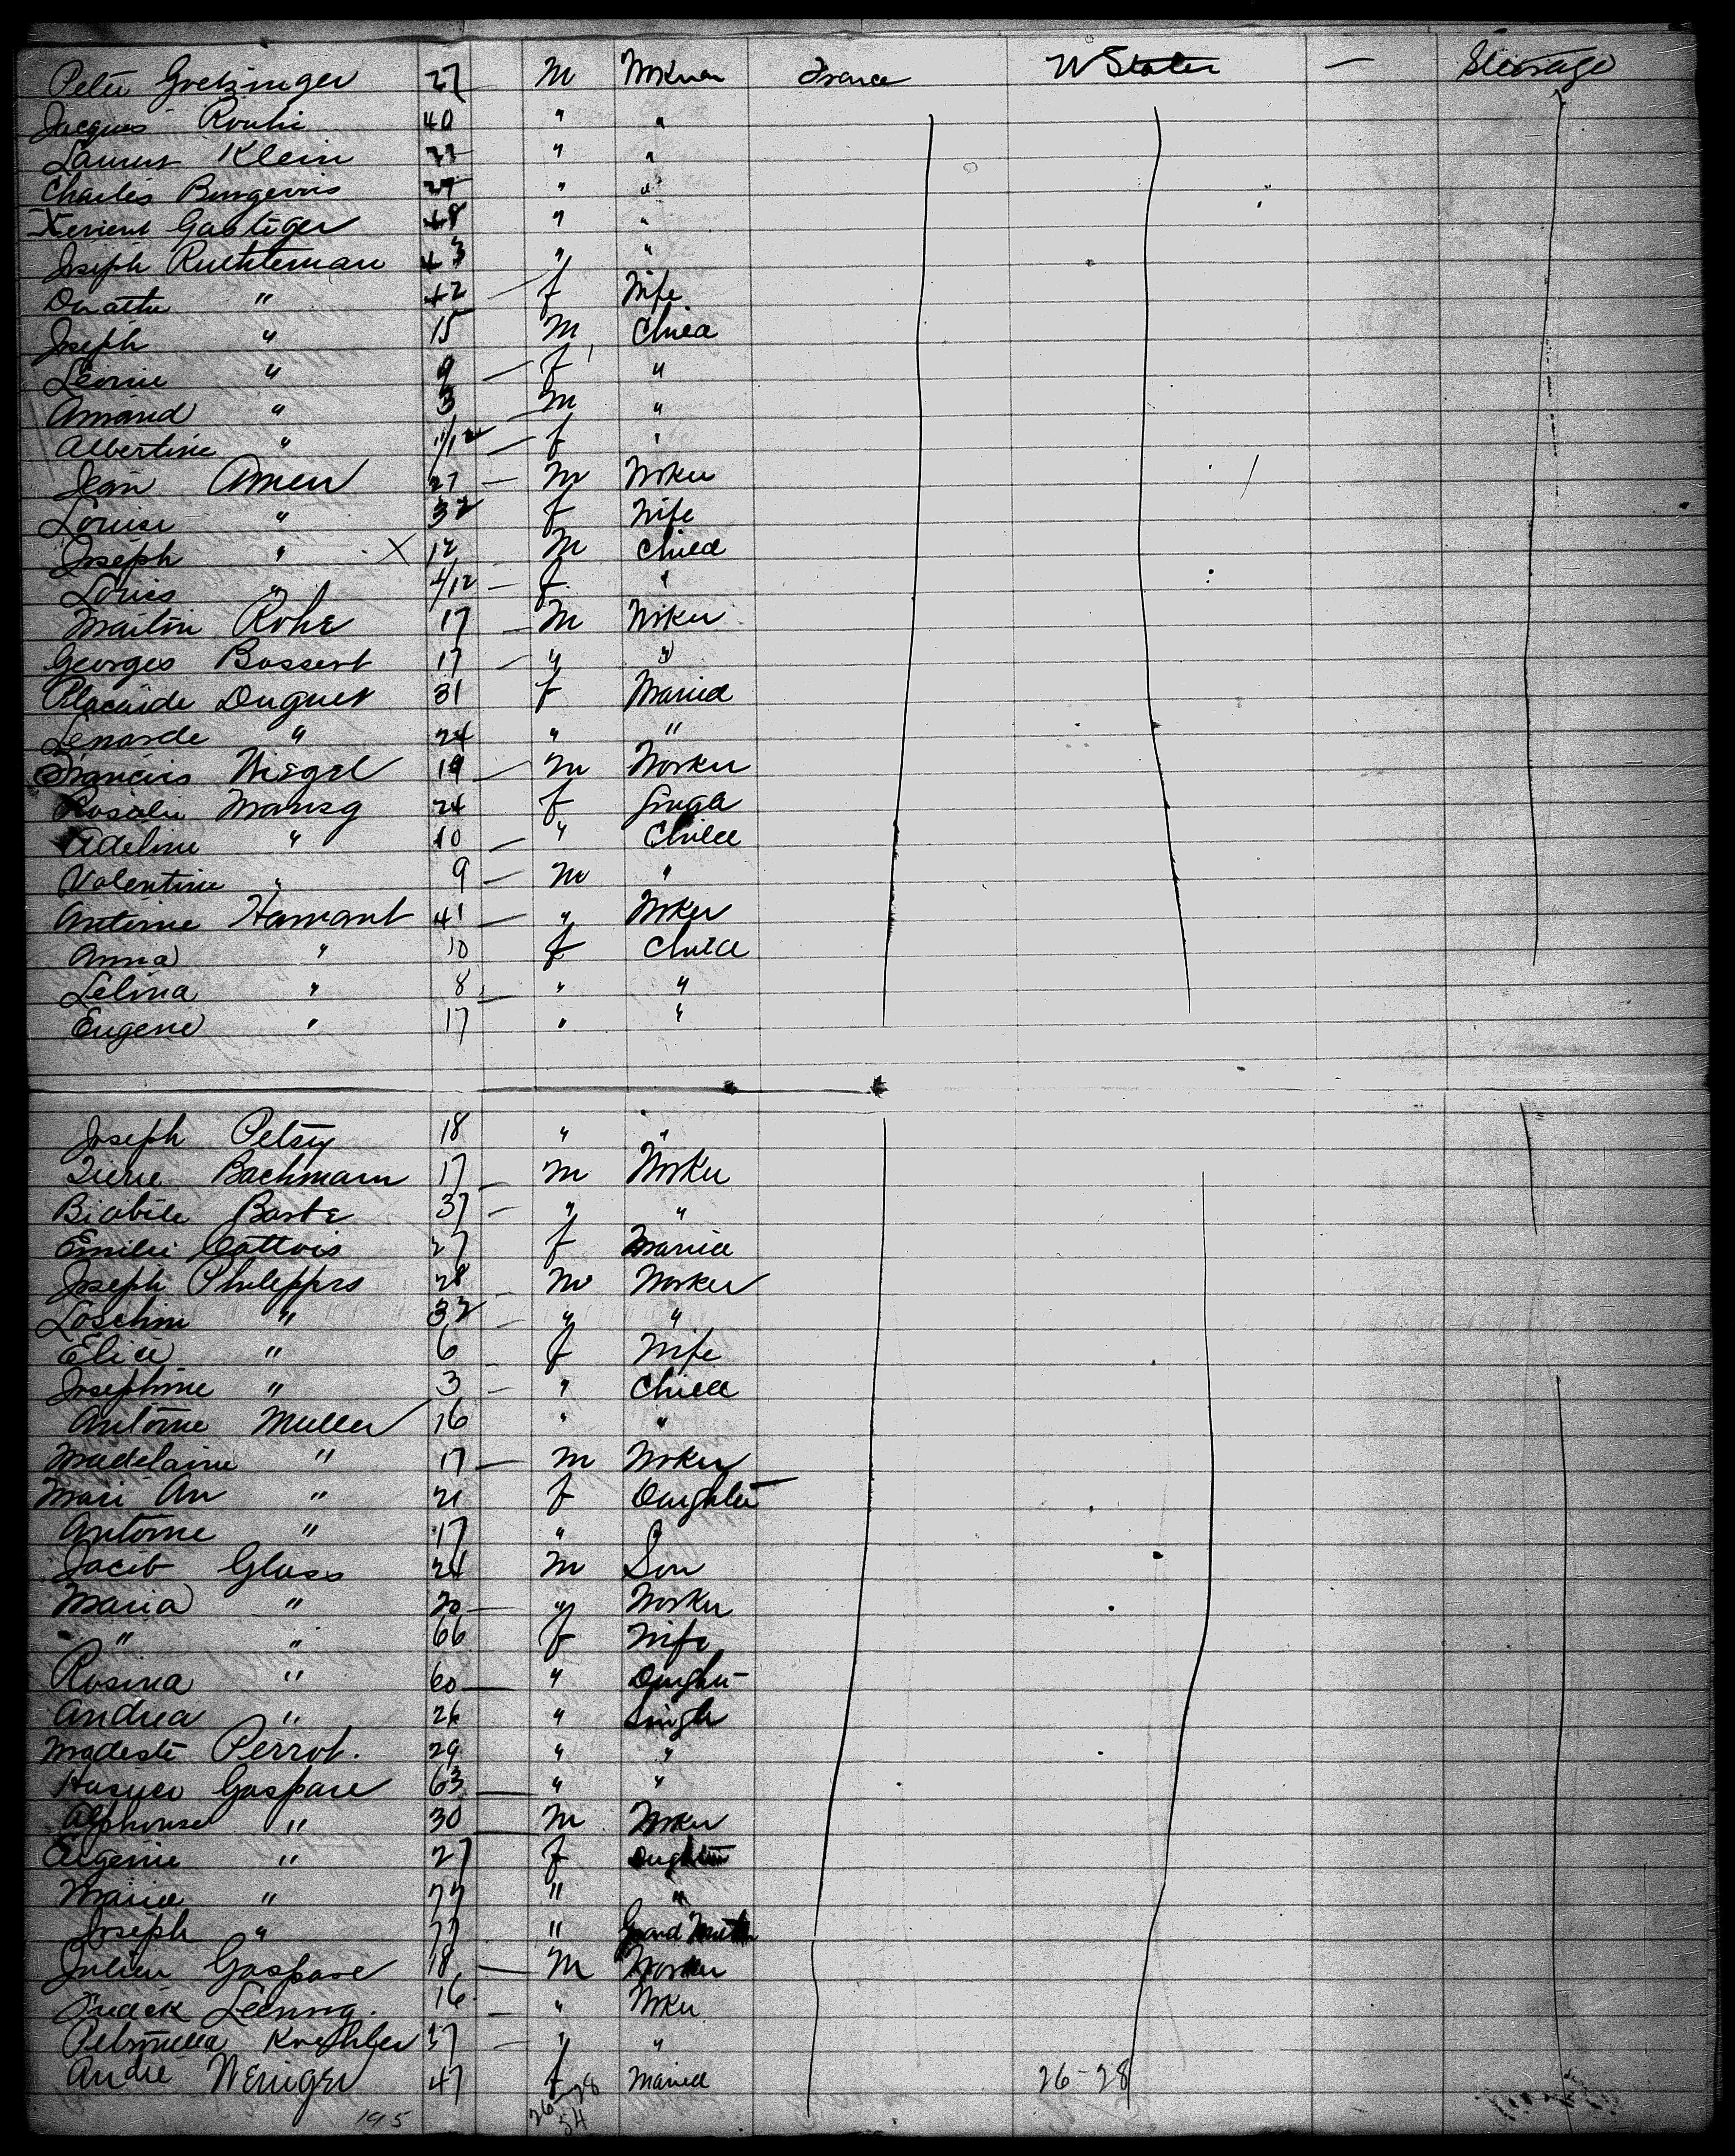 Peter Gretzinger 27 M Workman France U States — Steerage
Jacques Rouhi 40 " "
Laurent Klein " "
Charles Bourgeois 27 " "
Xerient Gastiger 48 " "
Joseph Ruchteman 43 " "
" 42 — f Wife
Joseph " 15 M Child
Leonie " 9 — f "
Amand " 3 M "
Albertine " 11/12 — f "
Jean Amen 27 — M Worker
Louise " 32 f Wife
Joseph " X 12 M Child
Louis " 4/12 — f "
Martin Rohe 17 — M Worker
Georges Bossert 17 — " "
Placaide Duguet 31 f Married
Lenarde " 24 " "
Francois Wiegel 19 — M Worker
Rosalie 24 f Single
Adeline " 10 — " Child
Valentine " 9 — M "
Antoine Hamant 41 — " Worker
Anna " 10 f Child
Lelina " 8 — " "
Eugene " 17 " "
Joseph Petsy 18 " "
Bachmann 17 — M Worker
Barte 37 — " "
Emilie Cattois 27 f Married
Joseph Philipps 28 — M Worker
" 32 — " "
Elise " 6 — f Wife
Josephine " 3 — " Child
Antoine Muller 16 " "
Madelaine " 17 — M Worker
Mari An " 21 f Daughter
Antoine " 17 "
Jacob Glass 24 M Son
Maria " 20 — " Worker
" " 66 f Wife
Rosina " 60 — " Daughter
Andrea " 26 " Single
Modeste Perrot. 29 " "
Gaspare 63 — " "
Alphonse " 30 — M Worker
Eugenie " 27 f Daughter
Maria " 77 " "
Joseph " 77 " Grand Moth
Julien Gaspare 18 — M Worker
16 — " Worker
Petronella Koehler 37 — " "
André Weniger 47 f Married 26-28
195 26-28
54